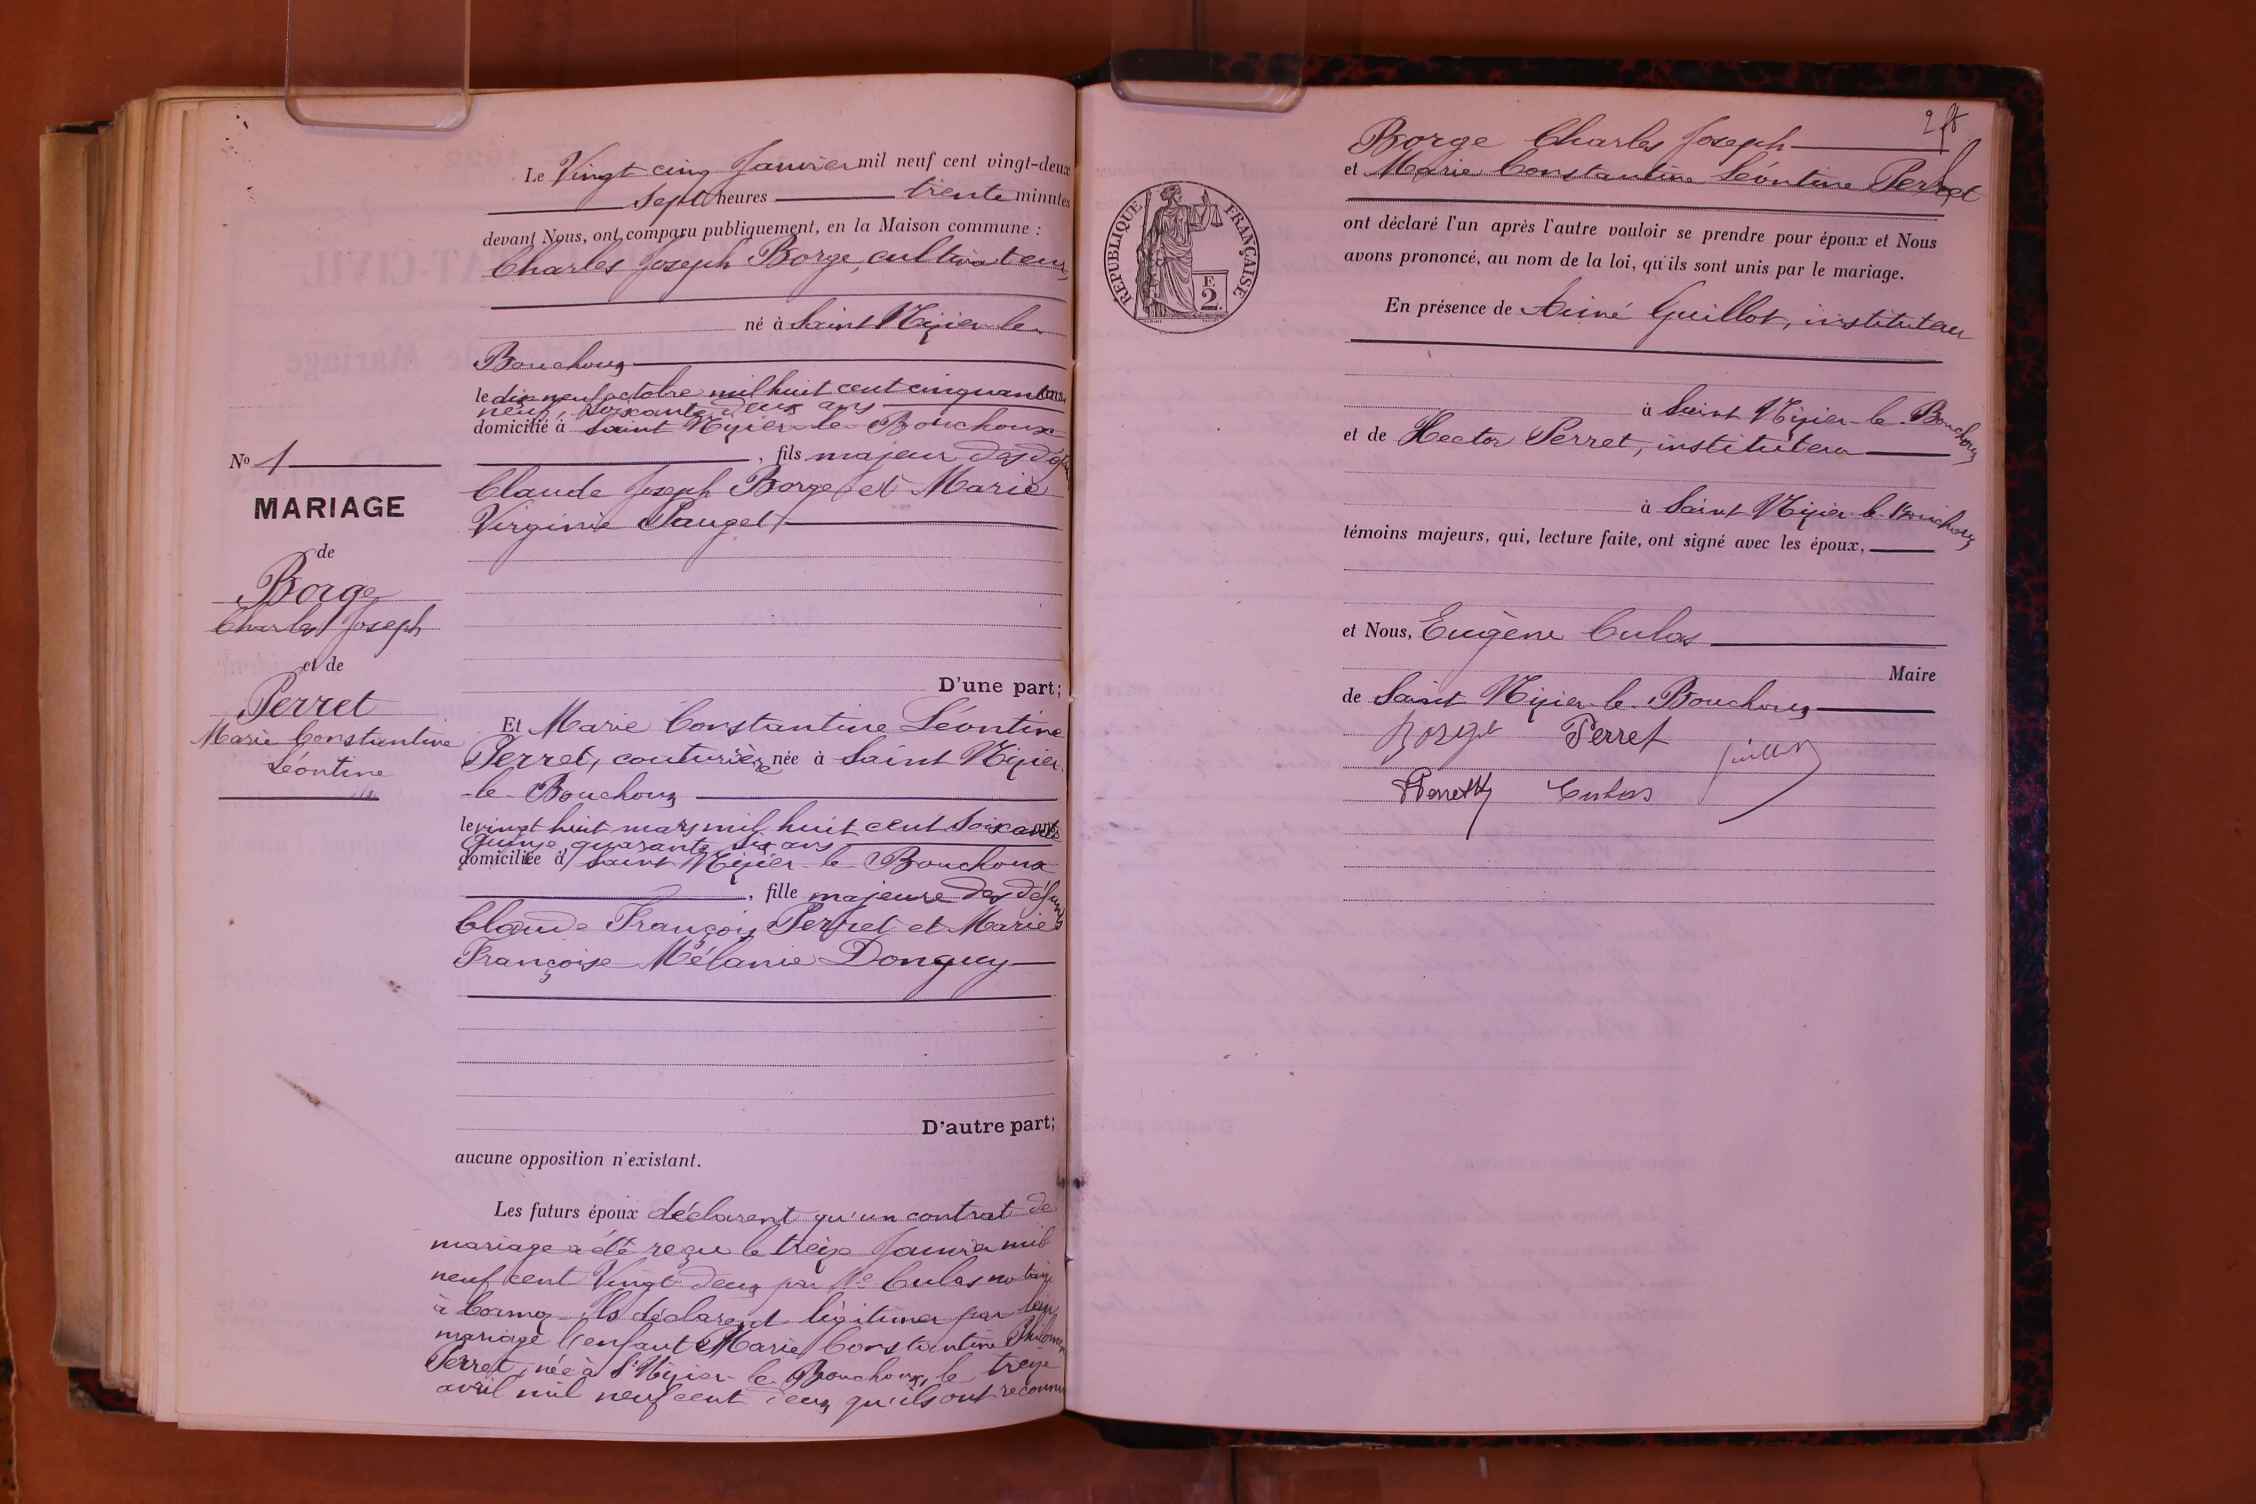 Le Vingt cinq Janvier mil neuf cent vingt-deux
sept heures trente minutes
devant Nous, ont comparu publiquement, en la Maison commune :
Charles Joseph Borge, cultivateur
né à Saint Nizier le
Bouchoux
le dix neuf octobre mil huit cent cinquante
neuf, soixante deux ans
domicilié à Saint Nizier le Bouchoux
, fils majeur des
Claude Joseph Borge et Marie
Virginie Pauget
D'une part;
Et Marie Constantine Léontine
Perret, couturière née à Saint Nizier
le Bouchoux
le vingt huit mars mil huit cent soixante
quinze, quarante six ans
domiciliée à Saint Nizier le Bouchoux
, fille majeure des défunts
Claude François Perret et Marie
Françoise Mélanie Donguy
D'autre part;
aucune opposition n'existant.
Les futurs époux déclarent qu'un contrat de
mariage a été reçu le treize Janvier mil
neuf cent Vingt deux par Me Culas notaire
à Cormoz. Ils déclarent légitimer par leur
mariage l'enfant Marie Constantine
Perret, née à St Nizier le Bouchoux, le treize
avril mil neuf cent deux qu'ils ont reconnu
No 1
MARIAGE
de
Borge
Charles Joseph
et de
Perret
Marie Constantine
Léontine
2
Borge Charles Joseph
et Marie Constantine Léontine Perret
RÉPUBLIQUE FRANÇAISE
F.
2
ont déclaré l'un après l'autre vouloir se prendre pour époux et Nous
avons prononcé, au nom de la loi, qu'ils sont unis par le mariage.
En présence de Aimé Guillot, instituteur
à Saint Nizier-le-Bouchoux
et de Hector Perret, instituteur
à Saint Nizier-le-Bouchoux
témoins majeurs, qui, lecture faite, ont signé avec les époux,
et Nous, Eugène Culas
Maire
de Saint Nizier-le-Bouchoux
Borge Perret Guillot
Culas